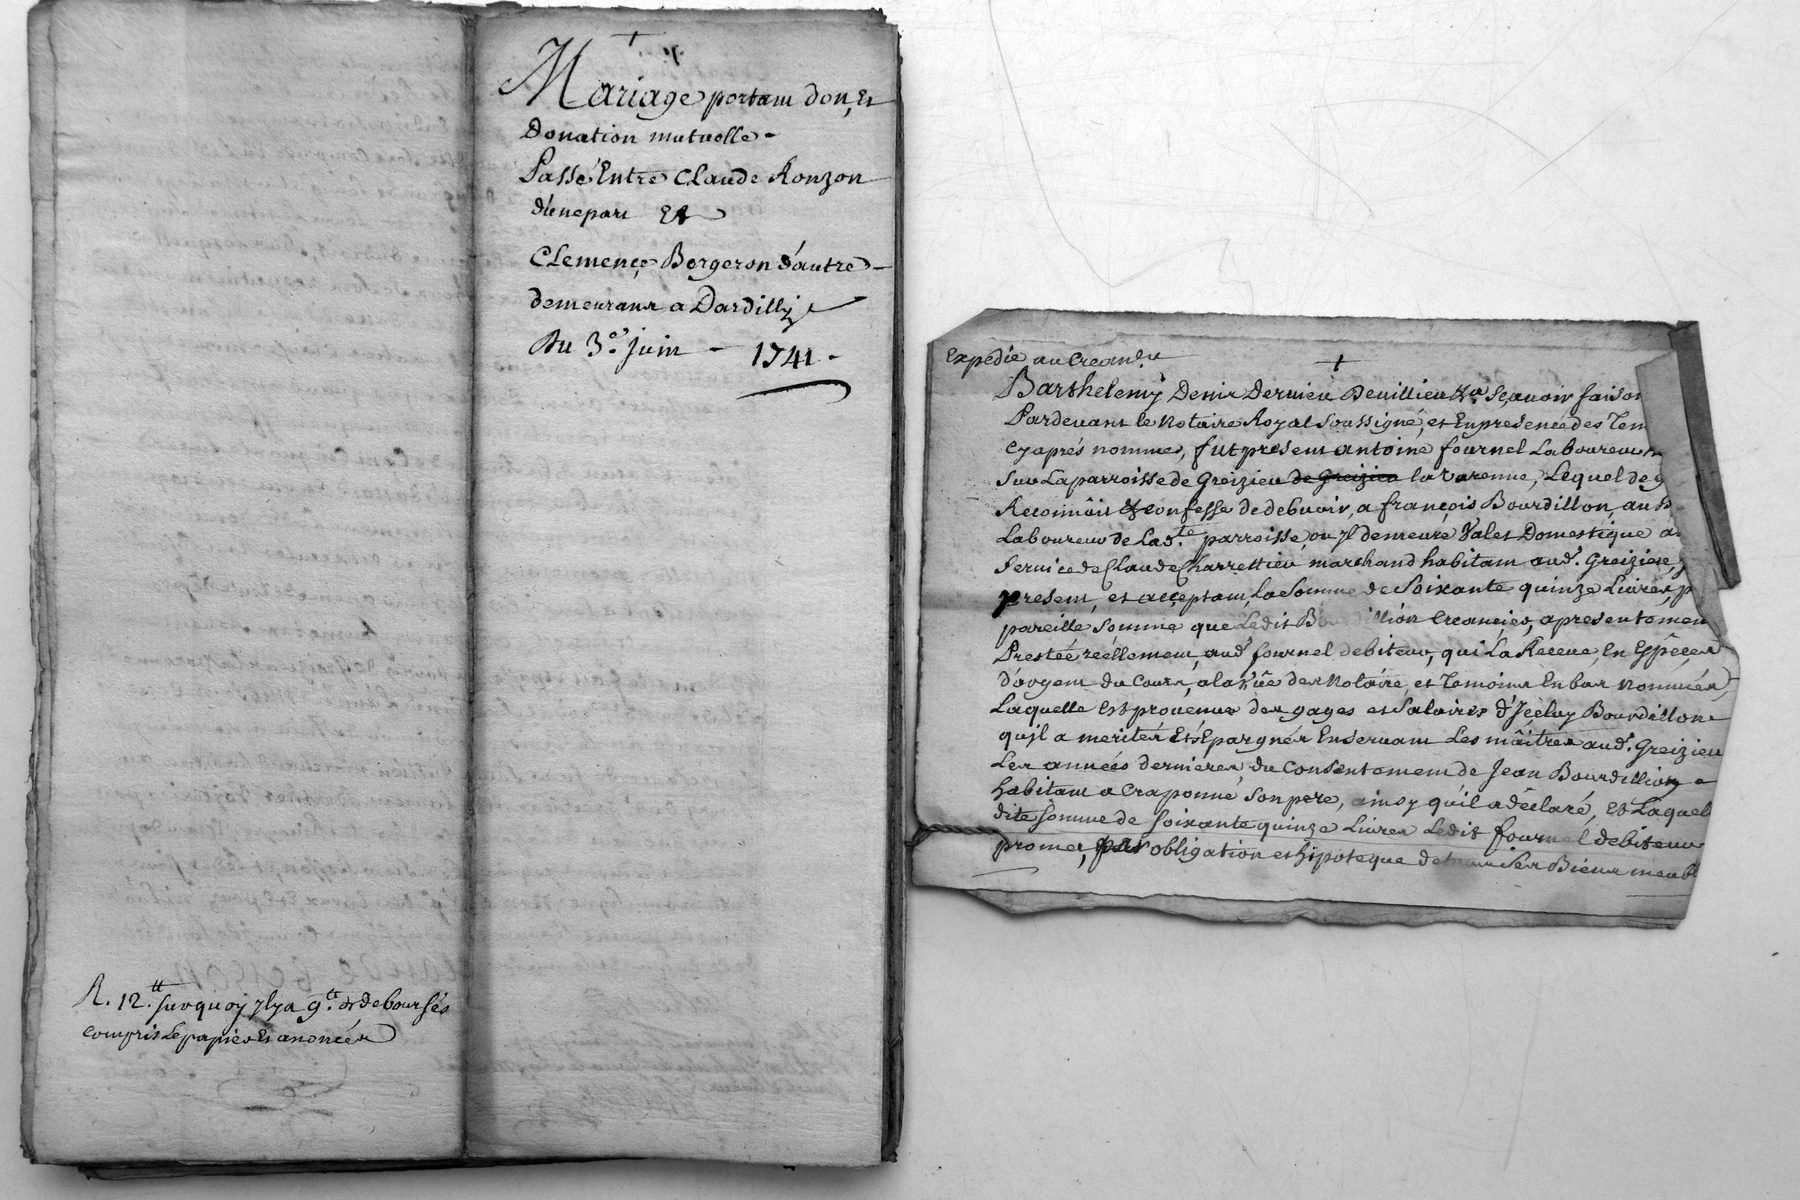 Mariage portant don, Et
Donation mutuelle -
Passé Entre Claude Ronzon
d'une part Et
Clemençe Bergeron d'autre -
demeurans a Dardilly
Du 3.e Juin - 1741 -
R. 12.tt surquoy Jl y a 9.tt de deboursés
compris Le papier Et anoncés
Expedié au Crean.er
Barthelemy Denis Dervieu Devillieu Sçavoir faisons
Pardevant le Notaire Royal Soussigné, et En presencé des Tem
Cy aprés nommés, fut present antoine fournel Laboureur
Sur La parroisse de Greizieu de Greizieu la Varenne, Lequel de g
Reconnôit & Confesse de debvoir, a françois Bourdillon, aussy
Laboureur de Lad.te parroisse, ou Jl demeure Valet Domestique a
Service de Claude Charrettieu marchand habitant aud.t Greizieu,
present, et acceptant, La Somme de Soixante quinze Livres, p
pareille Somme que Ledit Bourdillion Creancier, a presentement
Prestéé réellement, aud.t fournel debiteur, qui La Receue, En Espêces
D'argent du Cours, a la Vûe des Notaire, et Temoins En bas nommés,
Laquelle Est provenue des gages et Salaires d'Jceluy Bourdillon
qu'jl a merités Et Epargnés En Servant Les mâitres aud.t Greizieu
Les années dernieres, du Consentement de Jean Bourdillion
habitant a Craponne Son pere, ainsy qu'il a déclaré, Et Laquel
dite Somme de Soixante quinze Livres Ledit fournel debiteur
promet, par obligation et hipoteque de tous Ses Biens meubl